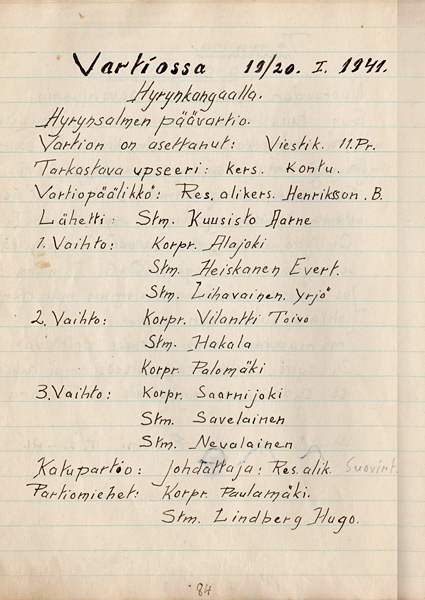 Vartiossa 19/20. I. 1941.
Hyrynkangaalla.
Hyrynsalmen päävartio.
Vartion on asettanut: Viestik. 11.Pr.
Tarkastava upseeri: kers. Kontu.
Vartiopäälikkö: Res. alikers. Henriksson. B.
Lähetti: Stm. Kuusisto Aarne
1. Vaihto: Korpr. Alajoki
Stm. Heiskanen Evert.
Stm. Lihavainen. Yrjö
2. Vaihto: Korpr. Vilantti Toivo
Stm. Hakala
Korpr. Palomäki
3. Vaihto: Korpr. Saarnijoki
Stm. Savelainen
Stm. Nevalainen
Katupartio: Johdattaja: Res. alik.
Partiomiehet: Korpr. Paulamäki.
Stm. Lindberg Hugo.
84